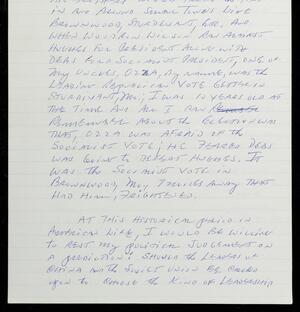 in no around small towns like
Brownwood, Sturdivant, etc. And
when Woodrow Wilson ran against
Hughes for President along with
Debs for Socialist President, one of
my uncles, Ozza, by name, was the
leading Republican vote getter in
Sturdivant, Mo; I was 10 years old at
the time and all I ran
remember about the election was
that, Ozza was afraid of the
Socialist vote; he feared Debs
was going to defeat Hughes. It
was the Socialist vote in
Brownwood, Mo, 7 miles away that
had him, frightened.
At this historical period in
American life, I would be willing
to rest my political judgement on
a prediction: should the leaders of
China and the Soviet Union be called
upon to choose the kind of leadership